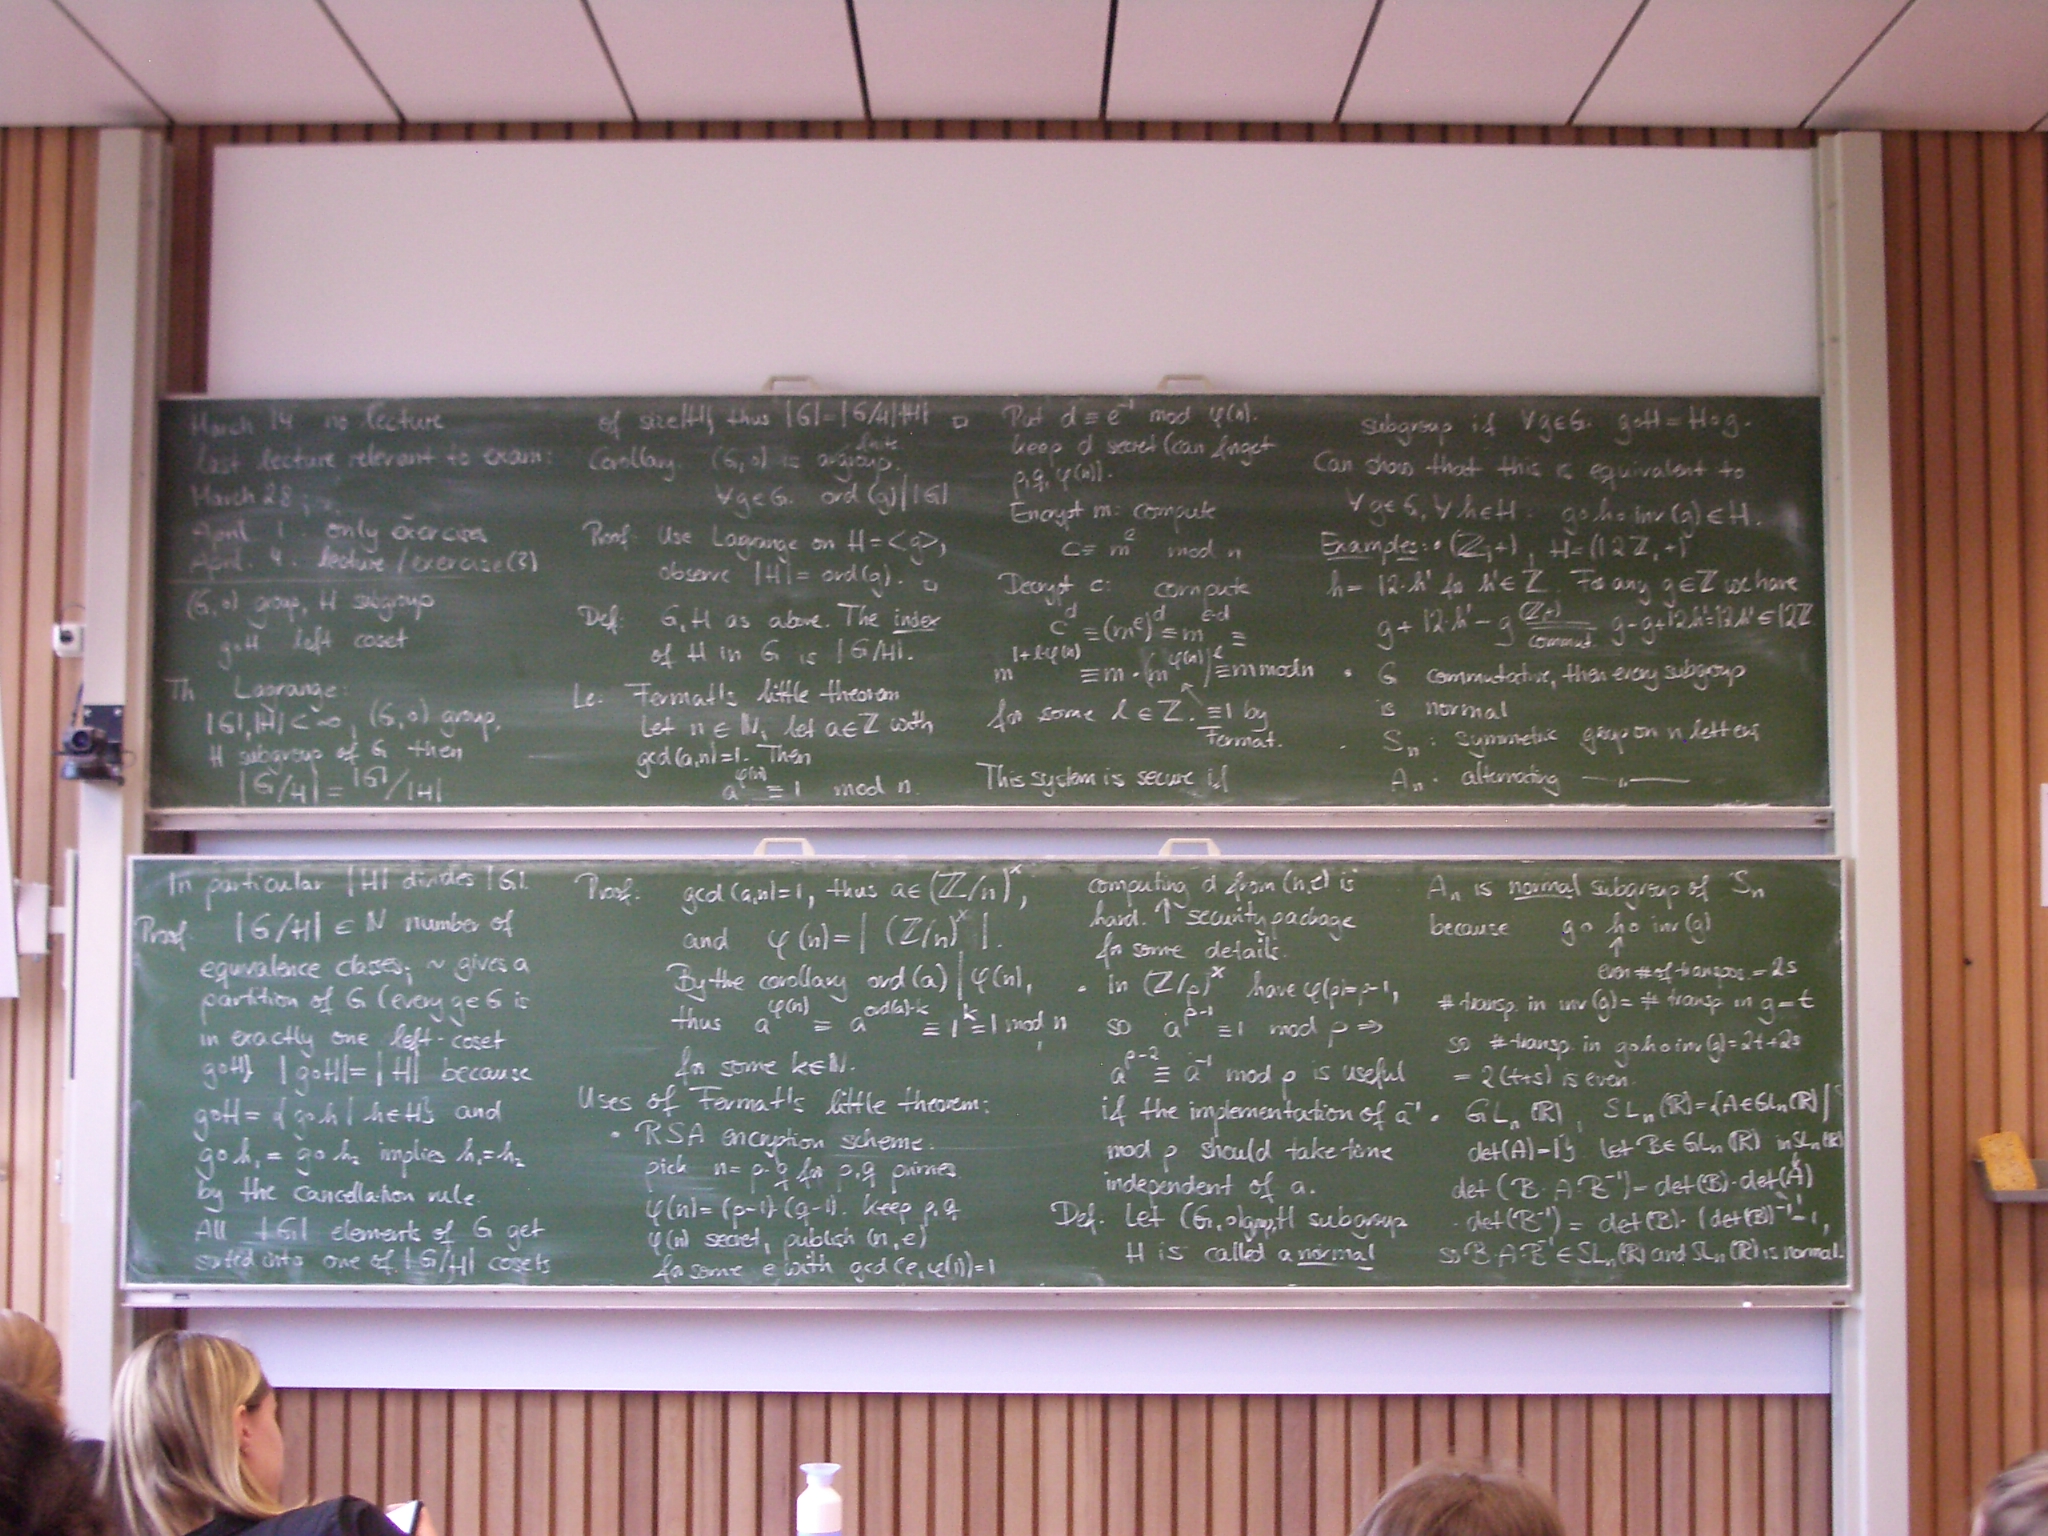 March 14 no lecture
last lecture relevant to exam:
March 28;
April 1. only exercises
April. 4. lecture / exercise(?)
(G,∘) group, H subgroup
g∘H left coset
Th Lagrange:
|G|,|H| < ∞, (G,∘) group,
H subgroup of G then
|G/H| = |G|/|H|
In particular |H| divides |G|.
Proof. |G/H| ∈ ℕ number of
equivalence classes; ~ gives a
partition of G (every g∈G is
in exactly one left-coset
g∘H) |g∘H| = |H| because
g∘H = {g∘h | h∈H} and
g∘h₁ = g∘h₂ implies h₁=h₂
by the cancellation rule.
All |G| elements of G get
sorted into one of |G/H| cosets
of size |H|, thus |G| = |G/H|·|H| □
Corollary. (G,∘) is a finite group.
∀g∈G. ord(g) | |G|
Proof: Use Lagrange on H=<g>,
observe |H| = ord(g). □
Def: G,H as above. The index
of H in G is |G/H|.
Le: Fermat's little theorem
Let n∈ℕ, let a∈ℤ with
gcd(a,n)=1. Then
a^φ(n) ≡ 1 mod n.
Proof. gcd(a,n)=1, thus a∈(ℤ/n)^×,
and φ(n) = |(ℤ/n)^×|.
By the corollary ord(a) | φ(n),
thus a^φ(n) ≡ a^ord(a)·k ≡ 1^k = 1 mod n
for some k∈ℕ.
Uses of Fermat's little theorem:
• RSA encryption scheme:
pick n = p·q for p,q primes
φ(n) = (p-1)·(q-1). Keep p,q
φ(n) secret, publish (n,e)
for some e with gcd(e,φ(n))=1
Put d ≡ e⁻¹ mod φ(n).
keep d secret (can forget
p,q,φ(n)).
Encrypt m: compute
c ≡ m^e mod n
Decrypt c: compute
c^d ≡ (m^e)^d ≡ m^e·d ≡
m^1+l·φ(n) ≡ m·(m^φ(n))^l ≡ m mod n
for some l∈ℤ. ≡1 by
Fermat.
This system is secure if
computing d from (n,e) is
hard. ↑ security package
for some details.
• in (ℤ/p)^× have φ(p)=p-1,
so a^p-1 ≡ 1 mod p ⇒
a^p-2 ≡ a⁻¹ mod p is useful
if the implementation of a⁻¹
mod p should take time
independent of a.
Def. Let (G,∘) group, H subgroup
H is called a normal
subgroup if ∀g∈G. g∘H = H∘g.
Can show that this is equivalent to
∀g∈G, ∀h∈H. g∘h∘inv(g) ∈ H.
Examples: • (ℤ,+), H=(12ℤ,+)
h = 12·h' for h'∈ℤ. For any g∈ℤ we have
g + 12·h' - g = (ℤ,+) commut. g-g+12h' = 12h' ∈ 12ℤ
• G commutative, then every subgroup
is normal
• Sₙ: symmetric group on n letters
Aₙ. alternating —〃—
Aₙ is normal subgroup of Sₙ
because g∘h∘inv(g)
↑
even # of transpos. = 2s
# transp. in inv(g) = # transp in g = t
so # transp. in g∘h∘inv(g) = 2t+2s
= 2(t+s) is even.
• GLₙ(ℝ), SLₙ(ℝ) = {A∈GLₙ(ℝ) |
det(A)=1}. Let B∈GLₙ(ℝ) in SLₙ(ℝ)
det(B·A·B⁻¹) = det(B)·det(A)
·det(B⁻¹) = det(B)·(det(B))⁻¹ = 1,
so B·A·B⁻¹ ∈ SLₙ(ℝ) and SLₙ(ℝ) is normal.